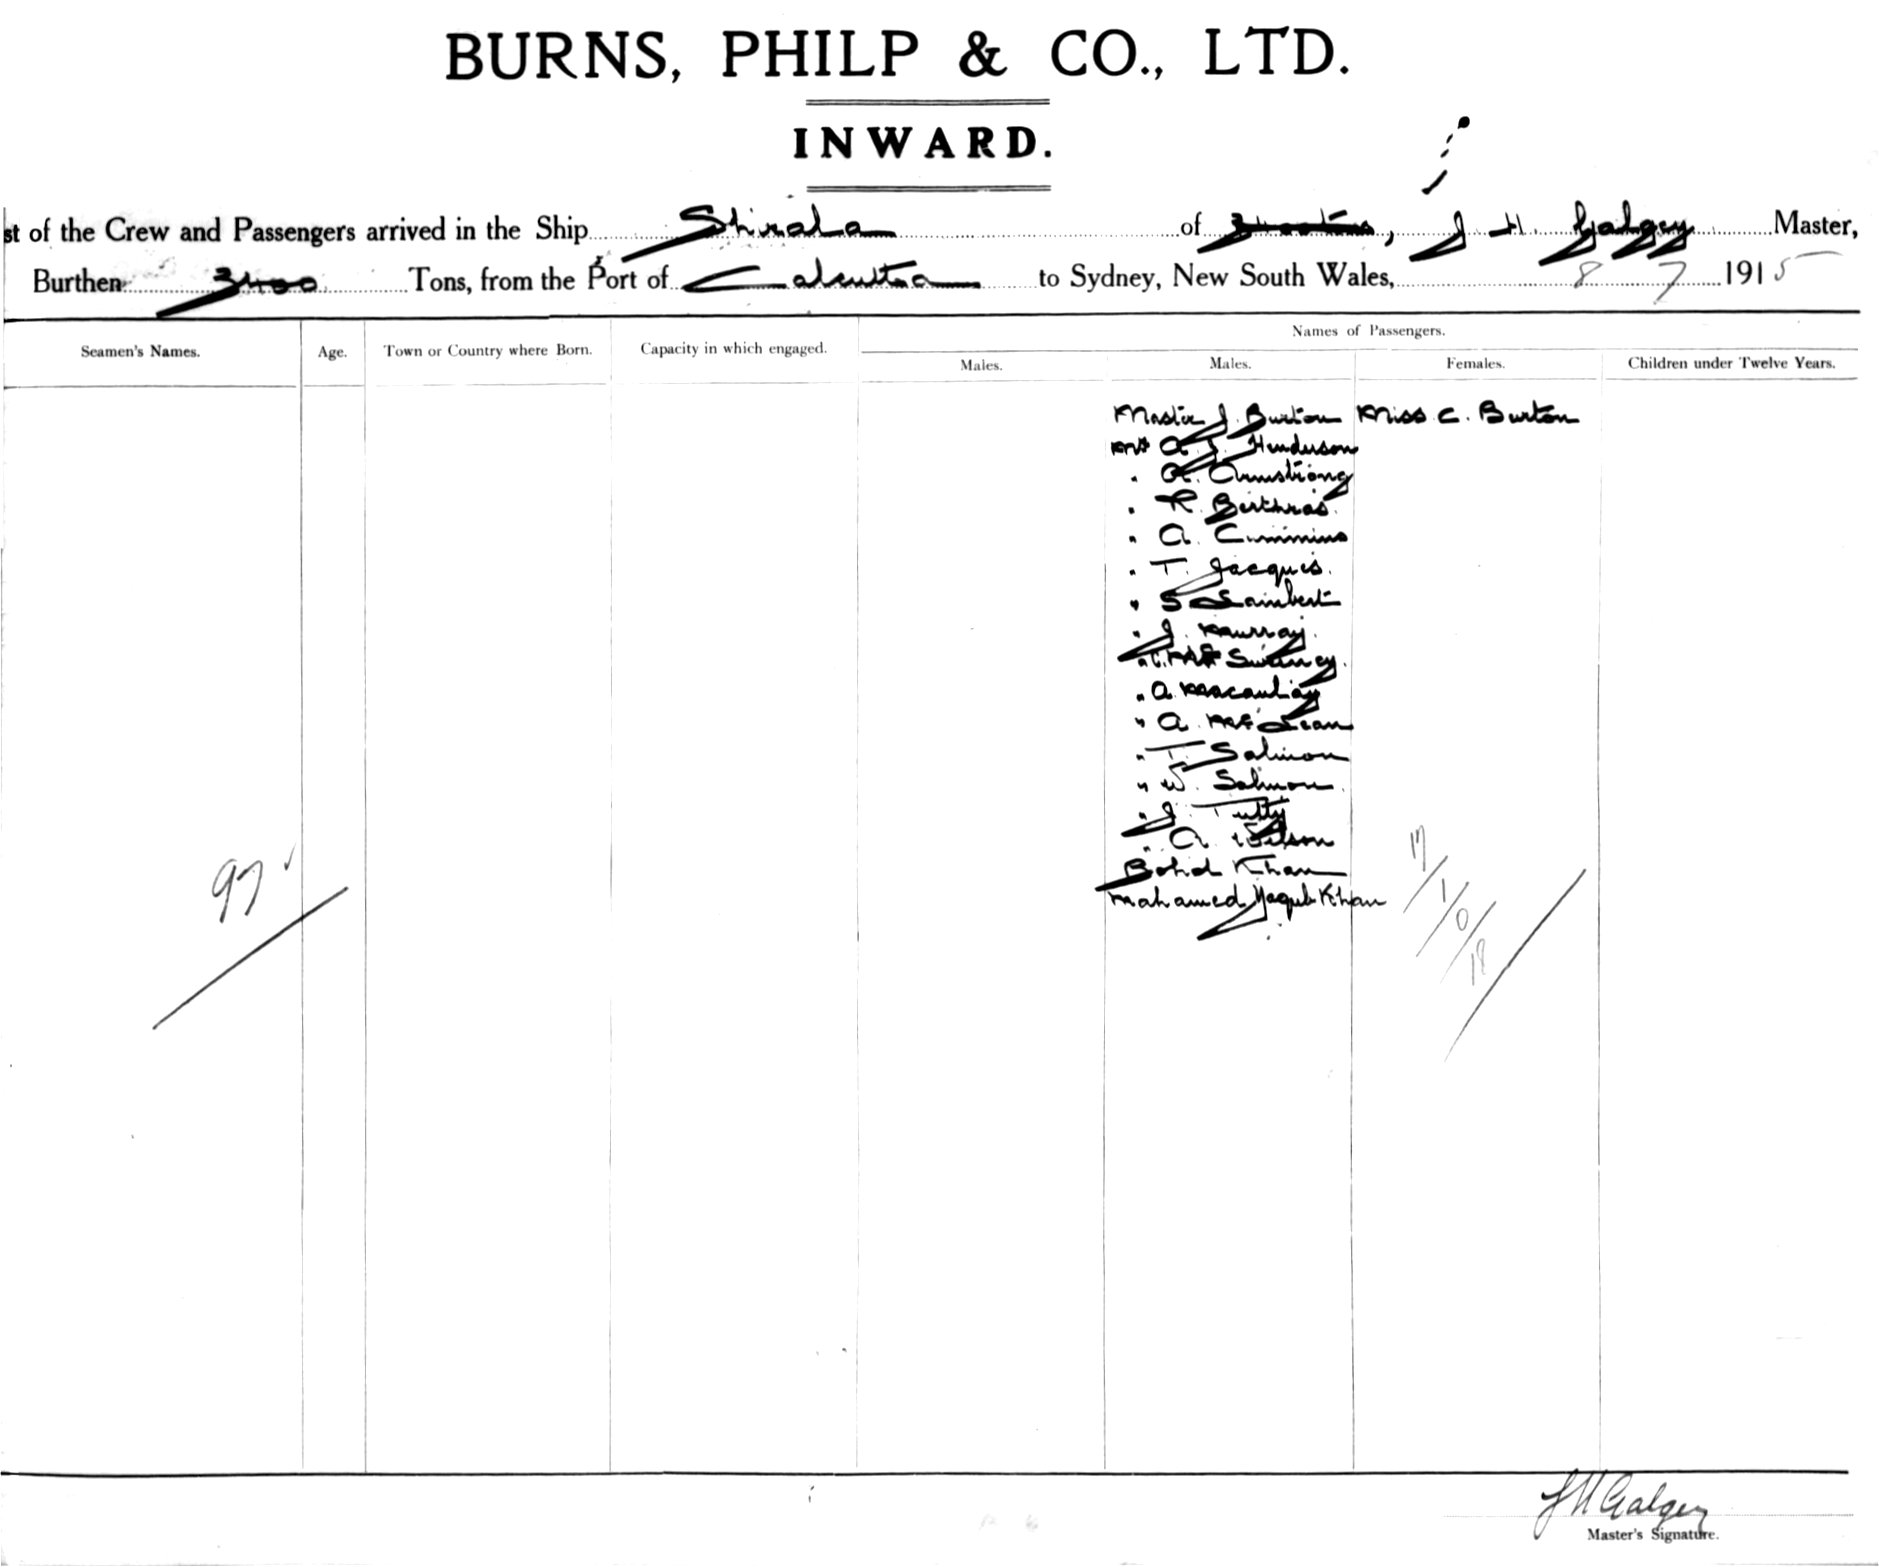 BURNS, PHILP & CO., LTD.
INWARD.
st of the Crew and Passengers arrived in the Ship Shirala of , J H. Galgey Master,
Burthen 3400 Tons, from the Port of Calcutta to Sydney, New South Wales, 8 7 1915
Names of Passengers.
Seamen's Names. Age. Town or Country where Born. Capacity in which engaged. Males. Males. Females. Children under Twelve Years.
Master J. Burton Miss C. Burton
Mr A. J. Henderson
" A. Armstrong
" R.
" A. Cummins
" T. Jacques.
" S Lambert
" J. Murray.
" Mc Swaney.
" A. Macaulay
" A. McLean
" T. Salmon
" W. Salmon.
" J. Tutty
" A. Wilson
Bohid Khan
Mahamed Yaqub Khan
97
17/1/0/18
J H Galgey
Master's Signature.